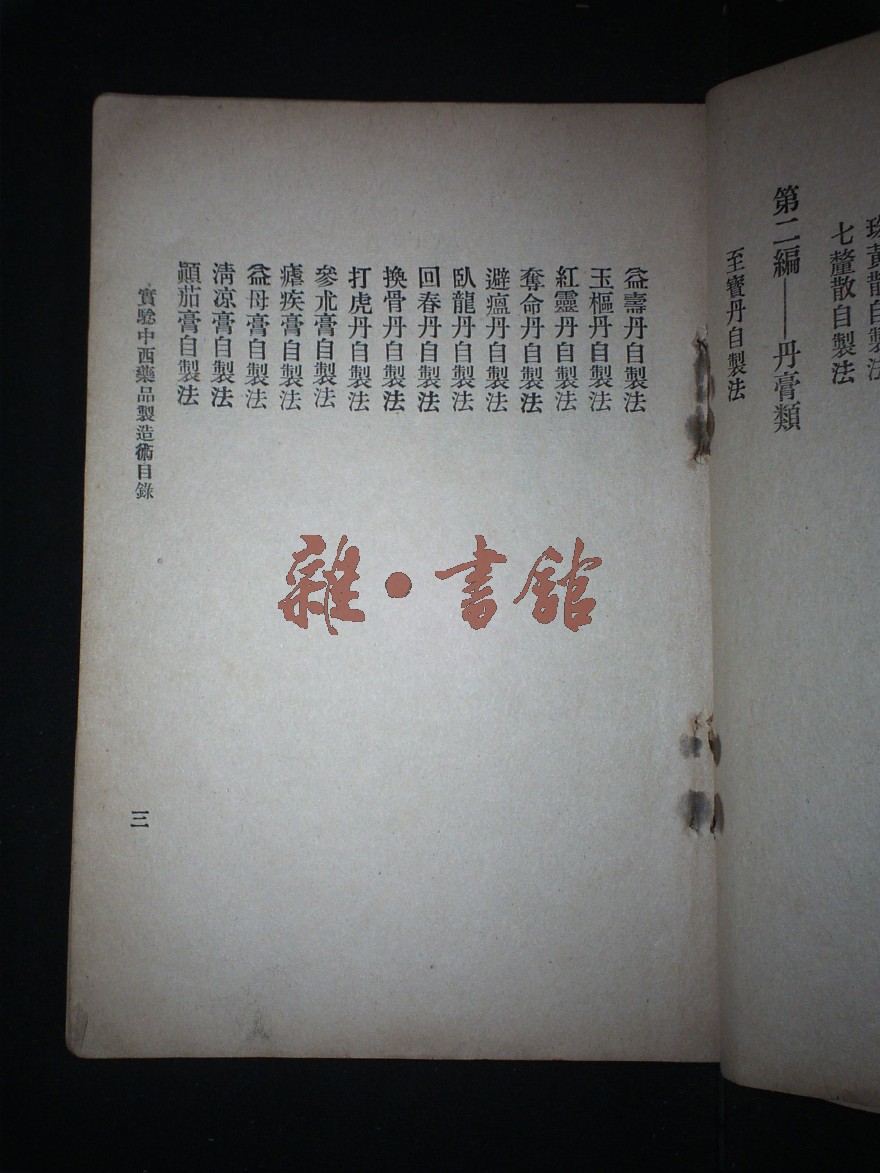 珠黃散自製法
七釐散自製法
第二編——丹膏類
至寶丹自製法
益壽丹自製法
玉樞丹自製法
紅靈丹自製法
奪命丹自製法
避瘟丹自製法
臥龍丹自製法
回春丹自製法
換骨丹自製法
打虎丹自製法
參朮膏自製法
瘧疾膏自製法
益母膏自製法
清涼膏自製法
顛茄膏自製法
實驗中西藥品製造術目錄
三
雜·書館